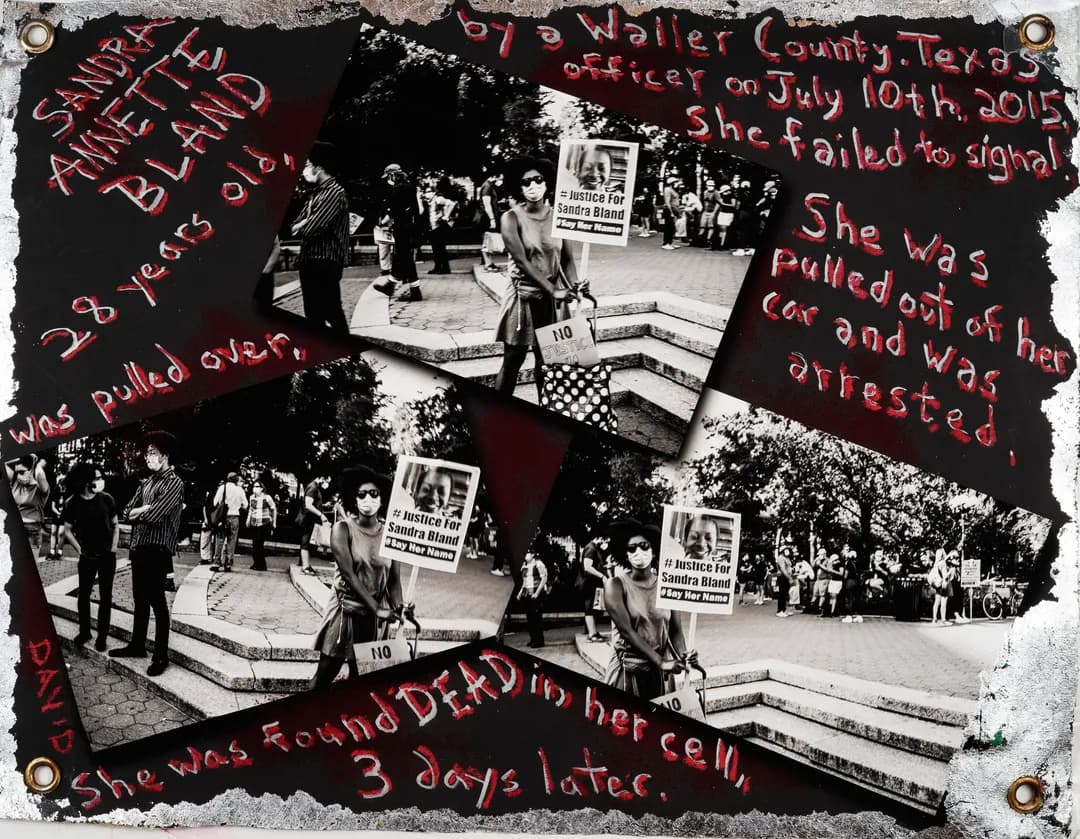 SANDRA
ANNETTE
BLAND
28 years old,
was pulled over,
by a Waller County. Texas
officer on July 10th, 2015,
She failed to signal.
She was
pulled out of her
car and was
arrested,
She was found DEAD in her cell,
3 days later.
DAVID
# Justice For
Sandra Bland
#Say Her Name
NO
JUSTICE
# Justice For
Sandra Bland
#Say Her Name
NO
# Justice For
Sandra Bland
#Say Her Name
NO